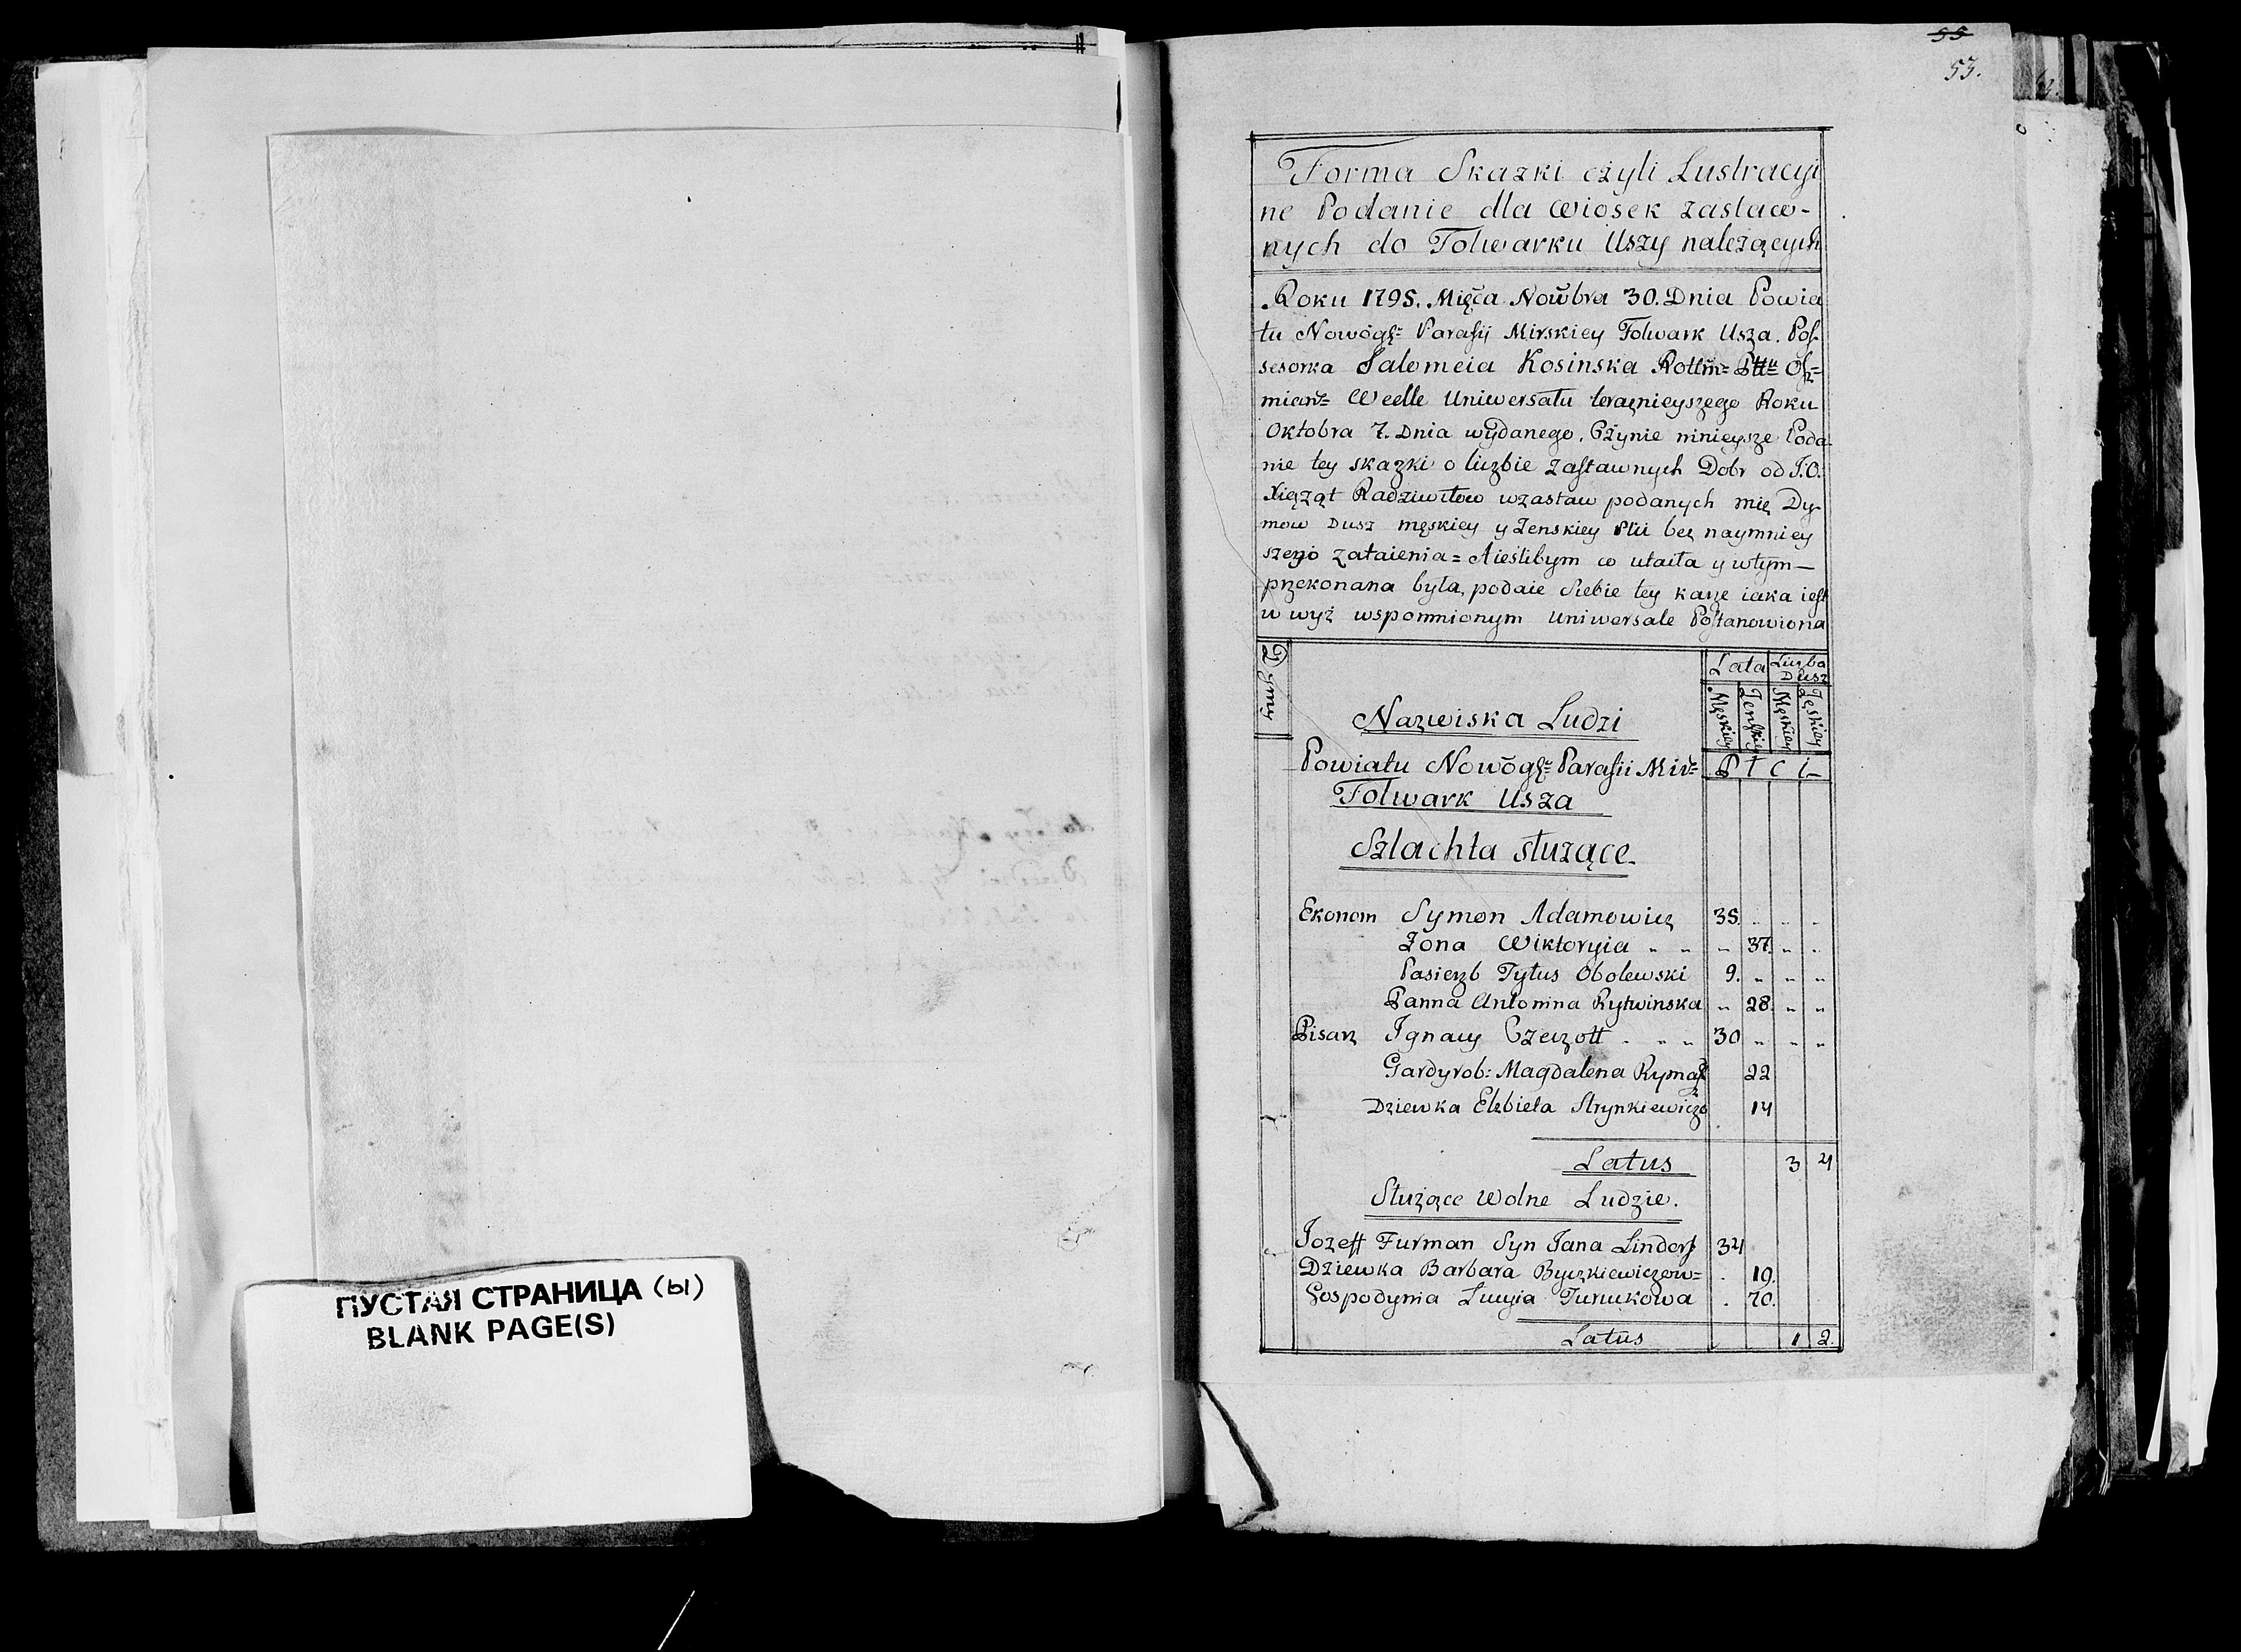 ПУСТАЯ СТРАНИЦА (Ы)
BLANK PAGE(S)
55
53.
Forma Skazki czyli Lustracyi
ne Podanie dla Wiosek zastaw-
nych do Folwarku Uszy należących
Roku 1795. Mięca Nowbra 30. Dnia Powia
tu Nowogs= Parafij Mirskiey Folwark Usza. Pos
sesorka Salomeia Kosinska Rottm= Pttu Osz=
mians= Wedle Uniwersału teraznieyszego Roku
Oktobra 7. Dnia wydanego. Czynie ninieysze Poda
nie tey skazki o liczbie zastawnych Dobr od J.O.
Xiążąt Radziwiłow wzastaw podanych mię Dy-
mow Dusz męskiey y Zenskiey Płci bez naymniey
szego zataienia = Jieslibym co utaiła y wtym—
przekonana była, podaie Siebie tey karze iaka iest
w wyż wspomnionym Uniwersale Postanowiona
Dymy
Nazwiska Ludzi
Lata Liczba Dusz
Męskiey Zenskiey Męskiey Zęskiey
Powiatu Nowogs= Parafii Mir= P ł c i—
Folwark Usza
Szlachta służące.
Ekonom Symon Adamowicz 35.
Zona Wiktoryia 37.
Pasierzb Tytus Obolewski 9.
Panna Antonina Rytwinska 28.
Pisarz Ignacy Czeczott 30
Gardyrob: Magdalena Rymasz 22
Dziewka Elzbieta Strynkiewiczo 14
Latus 3 4
Służące Wolne Ludzie.
Jozeff Furman Syn Jana Lindorf 34
Dziewka Barbara Byczkiewiczow= 19.
Gospodynia Lucyia 70.
Latus 1 2.